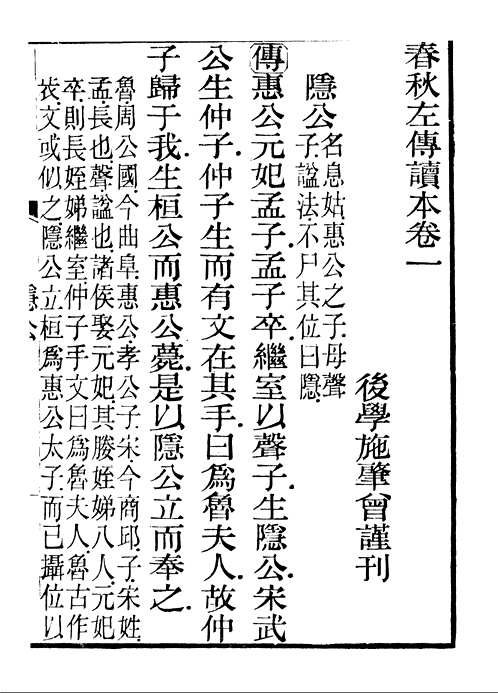 春秋左傳讀本卷一
後學施肇曾謹刊
隱公名息姑惠公之子母聲
子謚法不尸其位曰隱
傳惠公元妃孟子孟子卒繼室以聲子生隱公宋武
公生仲子仲子生而有文在其手曰爲魯夫人故仲
子歸于我生桓公而惠公薨是以隱公立而奉之
魯周公國今曲阜惠公孝公子宋今商邱子宋姓
孟長也聲謚也諸侯娶元妃其媵姪娣八人元妃
卒則長姪娣繼室仲子手文曰爲魯夫人魯古作
㐺文或似之隱公立桓爲惠公太子而已攝位以
隱公